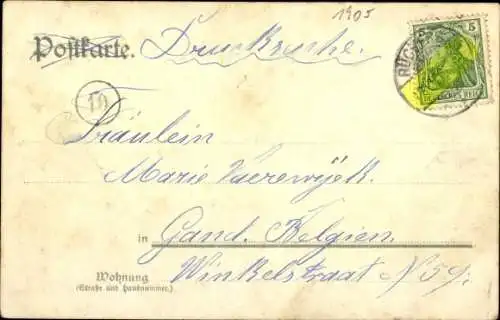 1905
Postkarte. Drucksache.
5
DEUTSCHES REICH
10
Fräulein
Marie Vaerewijck.
in Gand. Belgien.
Wohnung
(Straße und Hausnummer.)
Winkelstraat N 59.